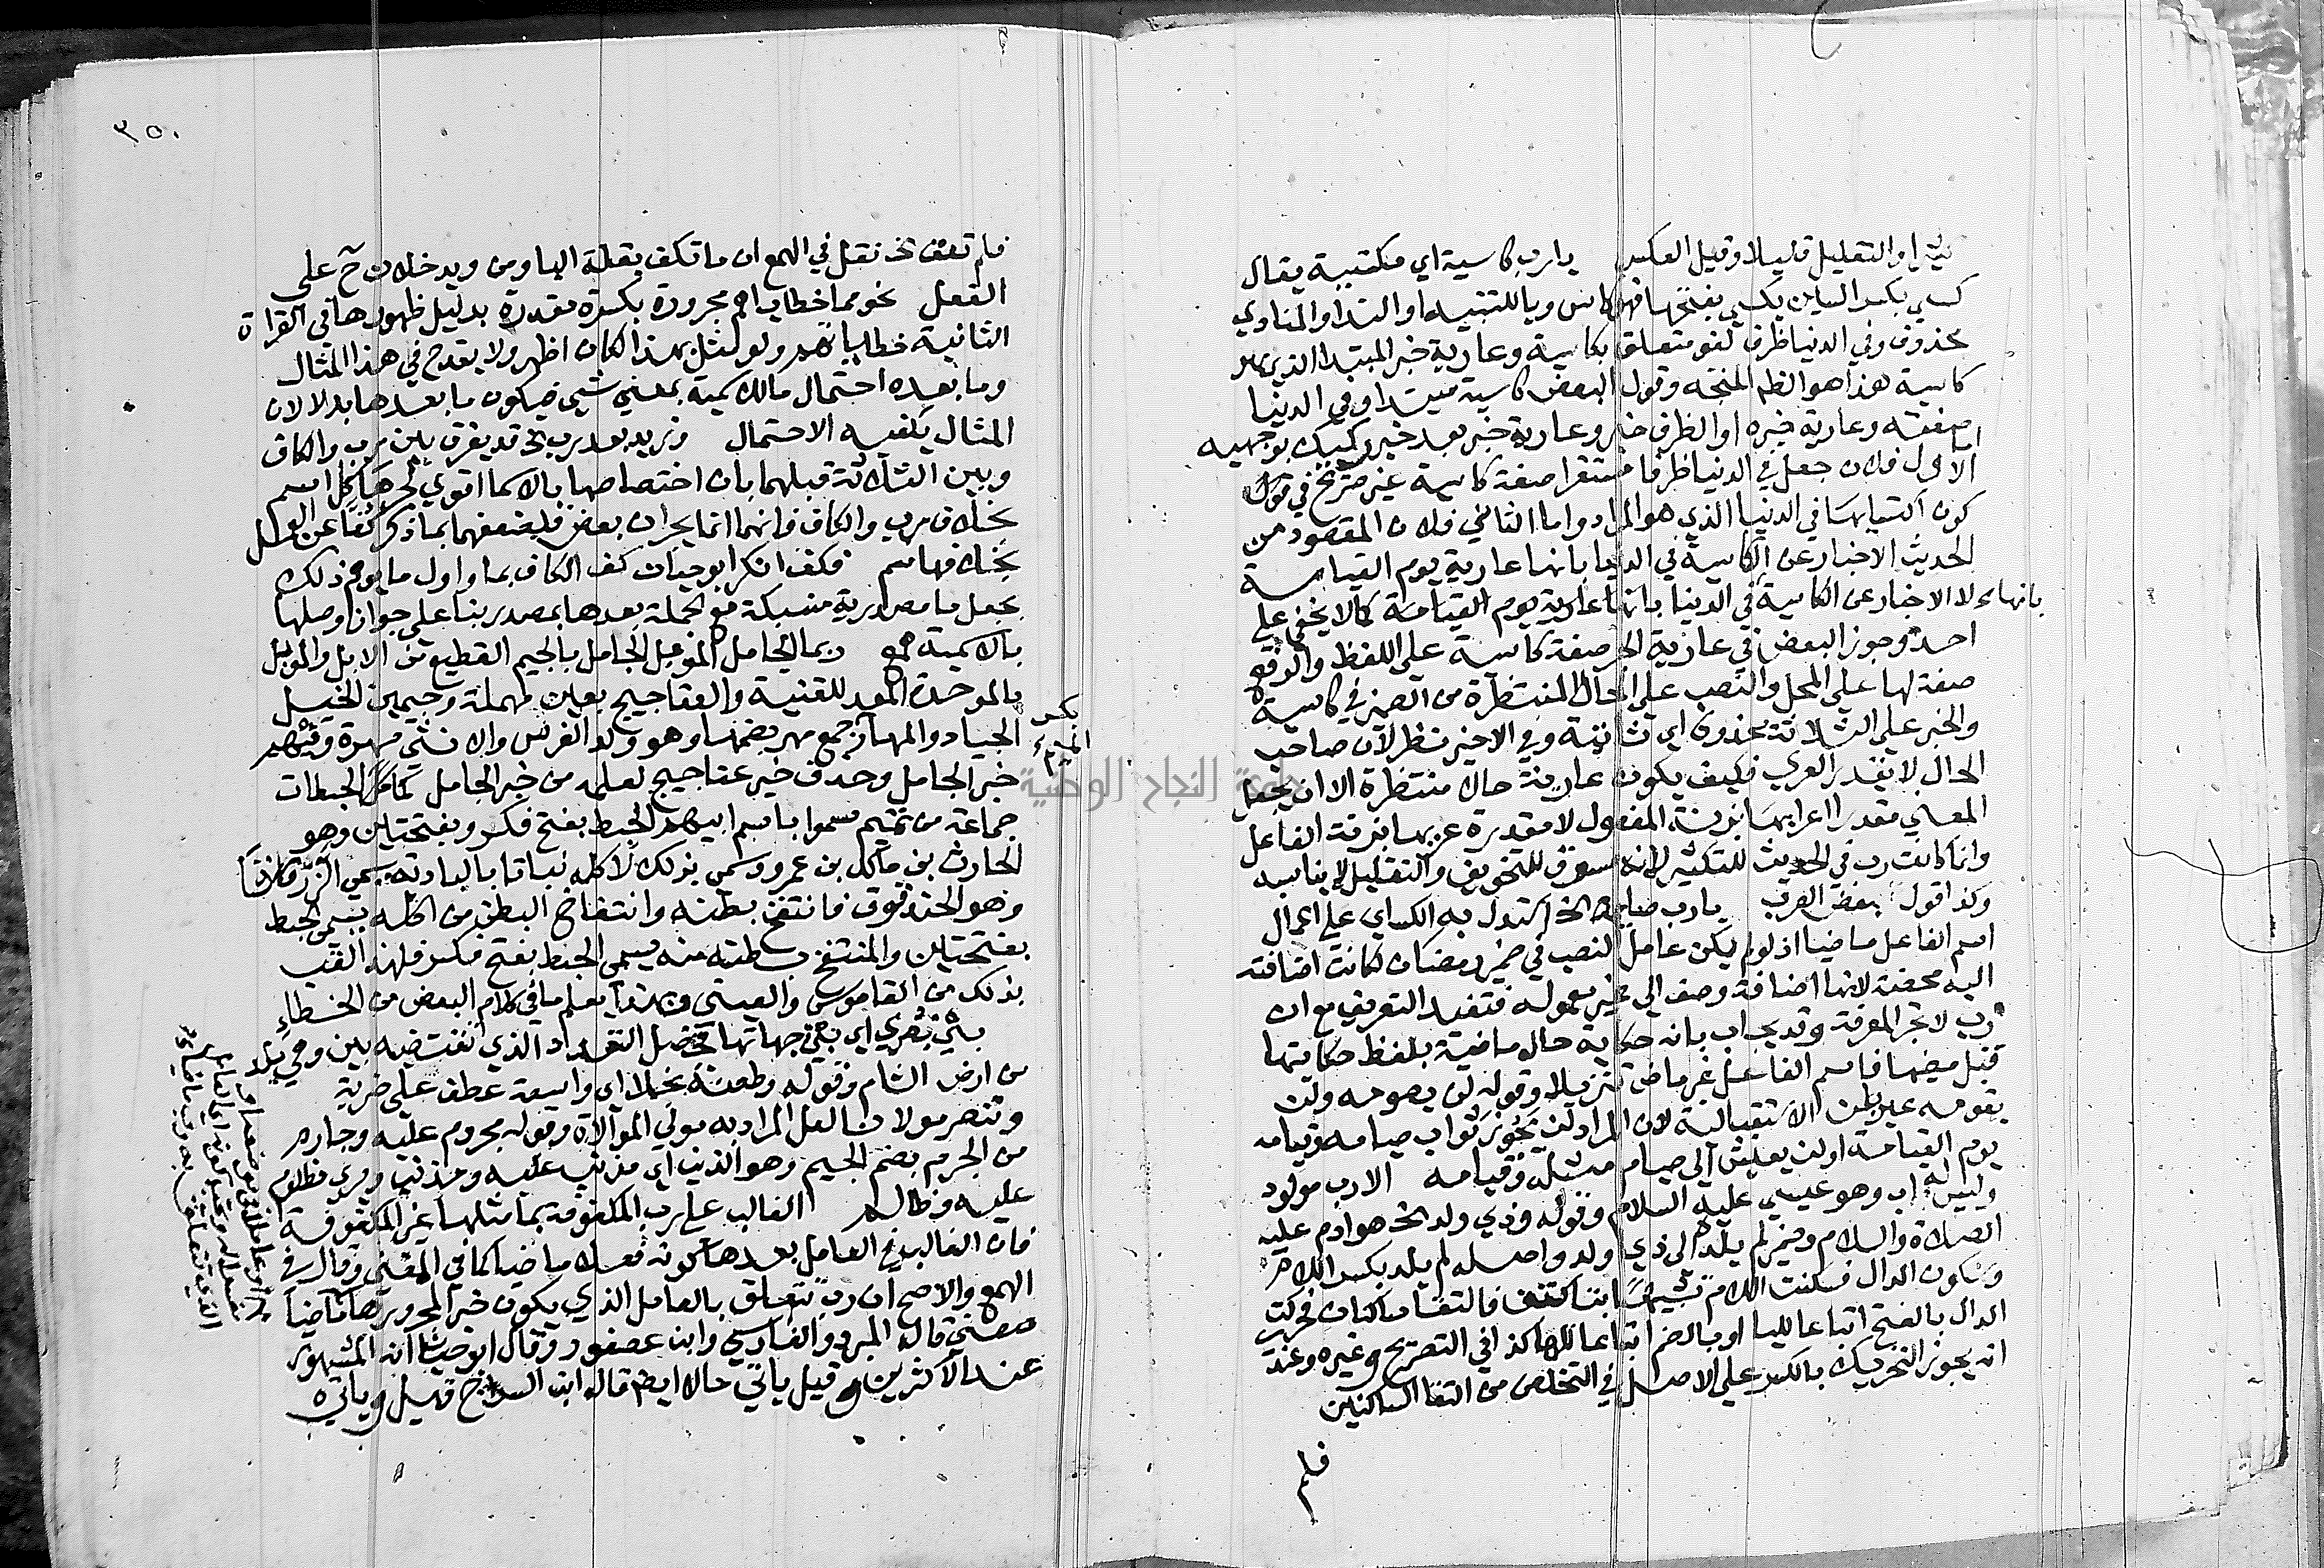 كثيرا والتقليل قليلا وقيل العكس يا رب كاسية اي مكتسية يقال
كسي بكسر السين يكسي بفتحها فهو كاس ويا للتنبيه او الندا والمنادي
محذوف وفي الدنيا ظرف لغو متعلق بكاسية وعارية خبر المبتدا الذي هو
كاسية هذا هو الظم المتجه وقول البعض كاسية مبتدا وفي الدنيا
صفته وعارية خبره او الظرف خبر وعارية خبر بعد خبر ركيك بوجهيه
اما الاول فلان جعل في الدنيا ظرفا مستقرا صفة كاسية غير صريح في
كون اكتسابها في الدنيا الذي هو المراد واما الثاني فلان المقصود من
الحديث الاخبار عن الكاسية في الدنيا بانها عارية يوم القيامة
بانها لا الاخبار عن الكاسية في الدنيا بانها عارية يوم القيامة كما لا يخفى على
احد وجوز البعض في عارية الجر صفة كاسية على اللفظ والرفع
صفة لها على المحل والنصب على الحال المنتظرة من الضمير في كاسية
والخبر على الثلاثة محذوف اي ثابتة وفي الاخير نظر لان صاحب
الحال لا يقدر العري فكيف يكون عارية حالا منتظرة الا ان يجعل
المعنى مقدرا اعرابها بزنة المفعول لا مقدرة عريها بزنة الفاعل
وانما كانت رب في الحديث للتكثير لانه مسوق للتخويف والتقليل لا يناسبه
وكذا قول بعض العرب يا رب صايمه الخ استدل به الكساي على اعمال
اسم الفاعل ماضيا اذ لو لم يكن عامل النصب في ضمير رمضان لكانت اضافته
اليه محضة لانها اضافة وصف الى غير معموله فتفيد التعريف مع ان
رب لا تجر المعرفة وقد يجاب بانه حكاية حال ماضية بلفظ حكايتها
قبل مضيها فاسم الفاعل غير ماض تنزيلا وقوله لن يصومه ولن
يقومه عبر بلن الاستقبالية لان المراد لن يحوز ثواب صيامه وقيامه
يوم القيامة او لن يعيش الى صيام مثله وقيامه الا رب مولود
وليس له اب وهو عيسى عليه السلام وقوله وذي ولد الخ هو ادم عليه
الصلاة والسلام وضمير لم يلده الى ذي ولد واصله لم يلد بكسر اللام
وسكون الدال فسكنت اللام تشبيها بتا كتف فالتقا ساكنان فحركت
الدال بالفتح اتباعا لليا او بالضم اتباعا للها كذا في التصريح وغيره وعندي
انه يجوز التحريك بالكسر على الاصل في التخلص من التقا الساكنين
فلم
٣٥٠
فلم تكف الخ نقل في الهمع ان ما تكف بقلة البا ومن ويدخلان ح على
الفعل نحو مما خطاياهم مجرورة بكسرة مقدرة بدليل ظهورها في القراة
الثانية خطيئاتهم ولو مثل بهذا لكان اظهر ولا يقدح في هذا المثال
وما بعده احتمال ما للاسمية بمعنى شيء فيكون ما بعدها بدلا لان
المثال يكفيه الاحتمال وزيد بعد رب الخ قد يفرق بين رب والكاف
وبين الثلاثة قبلهما بان اختصاصها بالاسما اقوى لجرها كل اسم
بخلاف رب والكاف فانهما انما يجران بعض فلضعفهما بما ذكر كفا عن العمل
بخلافها سم فكف انكر ابو حيان كف الكاف بما واول ما يوهم ذلك
بجعل ما مصدرية منسبكة مع الجملة بعدها بمصدر بنا على جواز وصلها
بالاسمية همع ربما الجامل المؤبل الجامل بالجيم القطيع من الابل والمؤبل
بالموحدة المعد للقنية والعناجيج بعين مهملة وجيمين الخيل
الجياد والمهار بكسر الميم جمع مهر بضمها وهو ولد الفرس والانثى مهرة وفيهم
خبر الجامل وحذف خبر عناجيج لعلمه من خبر الجامل كما الحبطات
جماعة من تميم سموا باسم ابيهم الحبط بفتح فكسر وبفتحتين وهو
الحارث بن مالك بن عمرو وسمي بذلك لاكله نباتا بالبادية يسمى
وهو الحندقوق فانتفخ بطنه وانتفاخ البطن من اكله يسمى الحبط
بفتحتين والمنتفخ بطنه منه يسمى الحبط بفتح فكسر فلهذا لقب
بذلك من القاموس والعيني وبهذا يعلم ما في كلام البعض من الخطاء
بين بصري اي بين جهاتها فحصل التعدد الذي تقتضيه بين وهي بلد
من ارض الشام وقوله وطعنة نجلاء اي واسعة عطف على ضربة
وننصر مولانا لعل المراد به مولى الموالاة وقوله مجروم عليه وجارم
من الجرم بضم الجيم وهو الذنب اي مذنب عليه ومذنب ويروى مظلوم
عليه وظالم الغالب على رب المكفوفة بما مثلها غير المكفوفة
فان الغالب في العامل بعدها كونه فعلا ماضيا كما في المغني وقال في
الهمع والاصح ان رب تتعلق بالعامل الذي يكون خبر المجرورها ماضيا
معنى قاله المبرد والفارسي وابن عصفور وقال ابو حيان انه المشهور
عند الاكثرين وقيل ياتي حالا ايضا قاله ابن السراج قيل وياتي